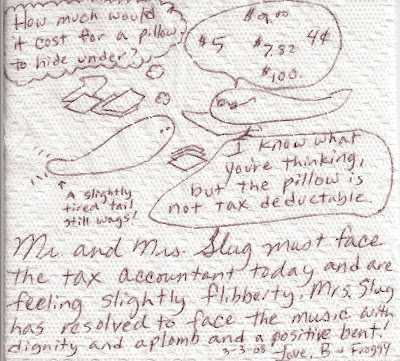 How much would
it cost for a pillow
to hide under?
$9.00
$5
$7.82
4¢
$100.
I know what
you're thinking,
but the pillow is
not tax deductable
A slightly
tired tail
still wags!
Mr and Mrs. Slug must face
the tax accountant today and are
feeling slightly flibberty. Mrs. Slug
has resolved to face the music with
dignity and aplomb and a positive bent!
3-3-08 Love, B. Froggy